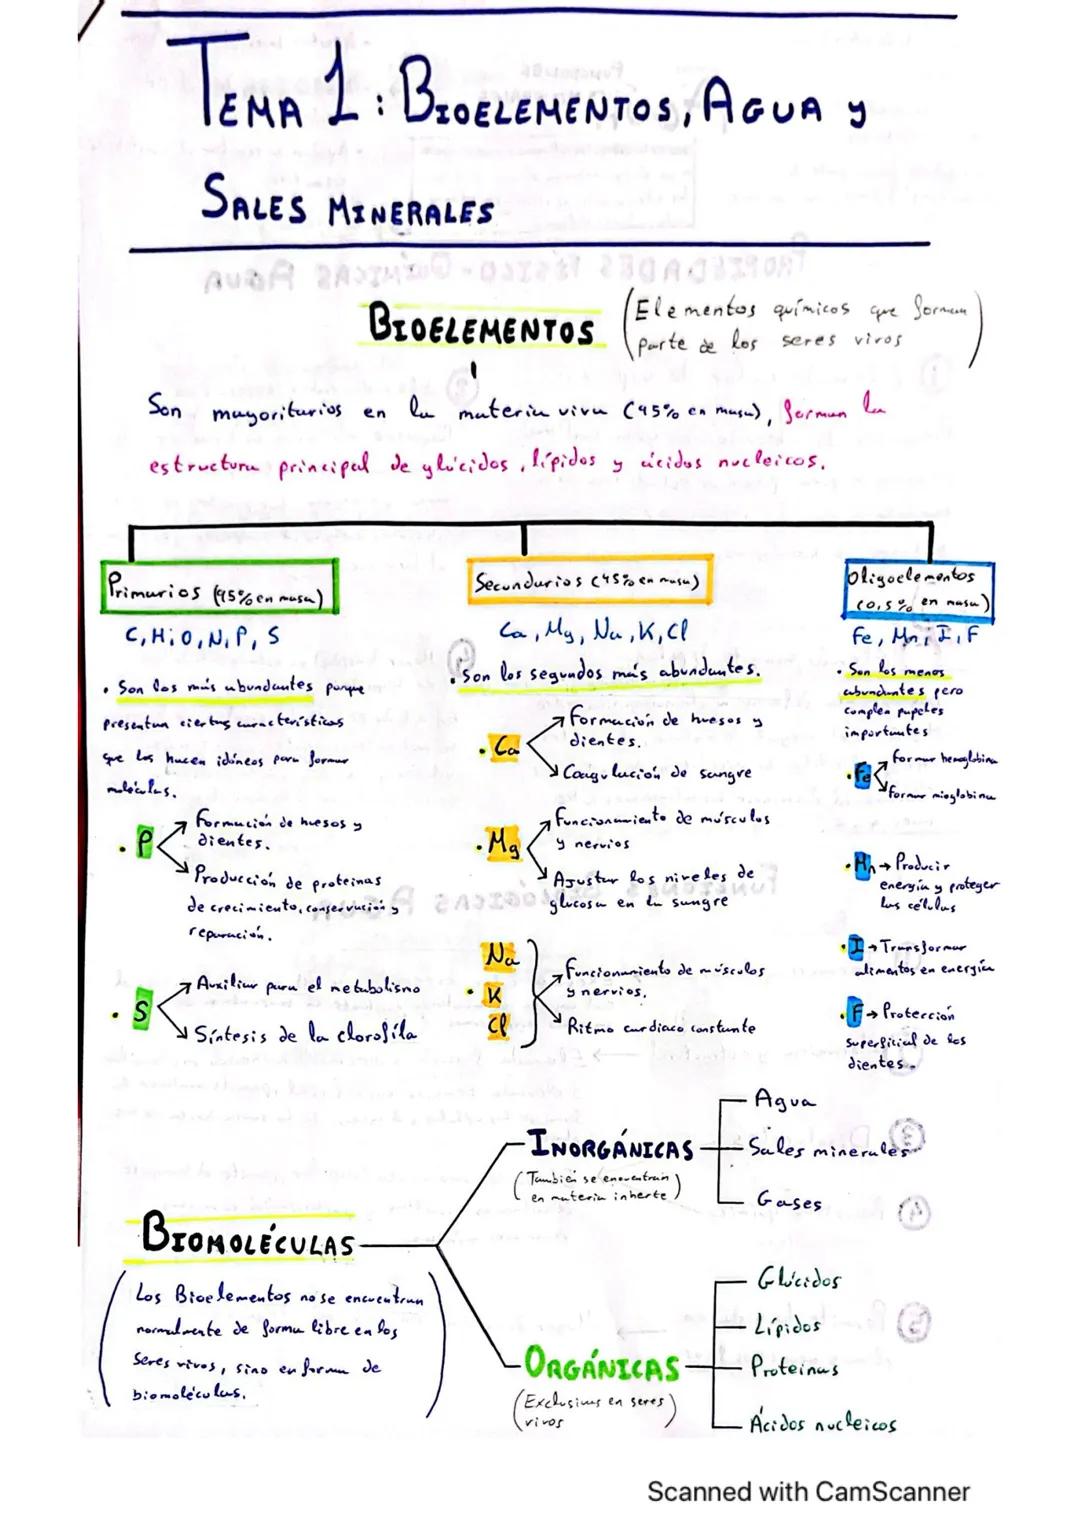 TEMA 1: BIOELEMENTOS, AGUA y
SALES MINERALES
BIOELEMENTOS
(Elementos químicos que forman
parte de los seres vivos)
Son mayoritarios en la materia viva (95% en masa), forman la
estructura principal de glúcidos, lípidos y ácidos nucleicos.
Primarios (95% en masa)
C, H, O, N, P, S
• Son los más abundantes porque
presentan ciertas características
que los hacen idóneos para formar
moléculas.
• P
Formación de huesos y
dientes.
Producción de proteinas
de crecimiento, conservación y
reparación.
• S
Auxiliar para el metabolismo
Síntesis de la clorofila
Secundarios (45% en masa)
Ca, Mg, Na, K, Cl
• Son los segundos más abundantes.
• Ca
Formación de huesos y
dientes.
Coagulación de sangre
• Mg
Funcionamiento de músculos
y nervios
Ajustar los niveles de
glucosa en la sangre
Na
• K
Cl
Funcionamiento de músculos
y nervios.
Ritmo cardiaco constante
Oligoelementos
(0,5% en masa)
Fe, Mn, I, F
• Son los menos
abundantes pero
complen papeles
importantes
• Fe
formar hemoglobina
formar mioglobina
• Mn → Producir
energía y proteger
las células
• I → Transformar
alimentos en energía
• F → Protección
superficial de los
dientes.
BIOMOLÉCULAS
(Los Bioelementos no se encuentran
normalmente de forma libre en los
seres vivos, sino en forma de
biomoléculas.)
INORGÁNICAS
(También se encuentran
en materia inherte)
Agua
Sales minerales
Gases
ORGÁNICAS
(Exclusivas en seres
vivos)
Glúcidos
Lípidos
Proteinas
Ácidos nucleicos
Scanned with CamScanner